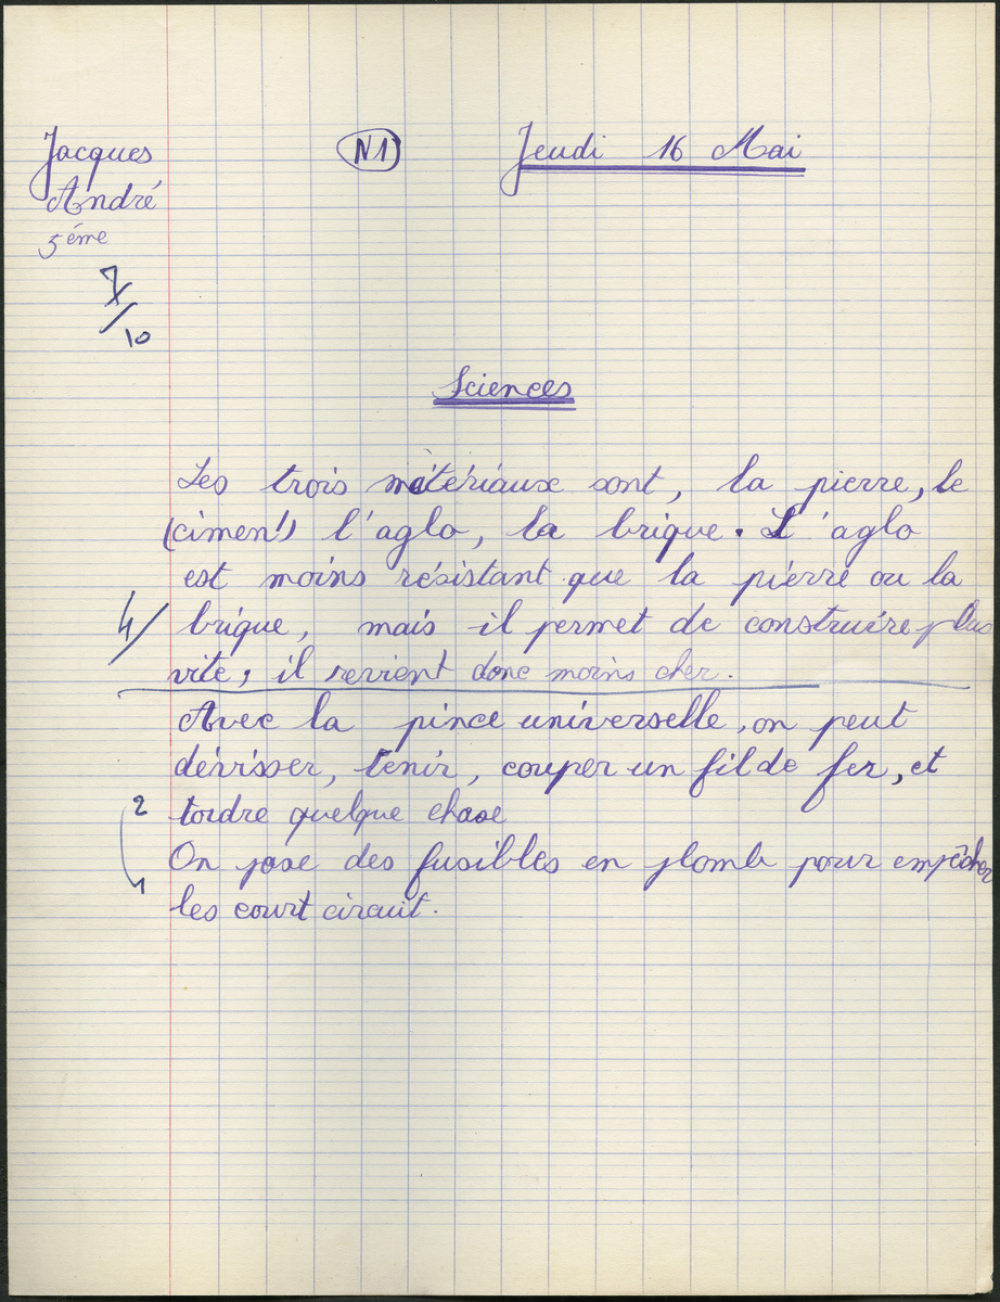 Jacques
André
5ème
N1
Jeudi 16 Mai
7/10
Sciences
Les trois matériaux sont, la pierre, le
(ciment) l'aglo, la brique. L'aglo
est moins résistant que la pierre ou la
4/
brique, mais il permet de construire plus
vite, il revient donc moins cher.
Avec la pince universelle, on peut
dévisser, tenir, couper un fil de fer, et
2
tordre quelque chose
On pose des fusibles en plomb pour empêcher
1
les court circuit.